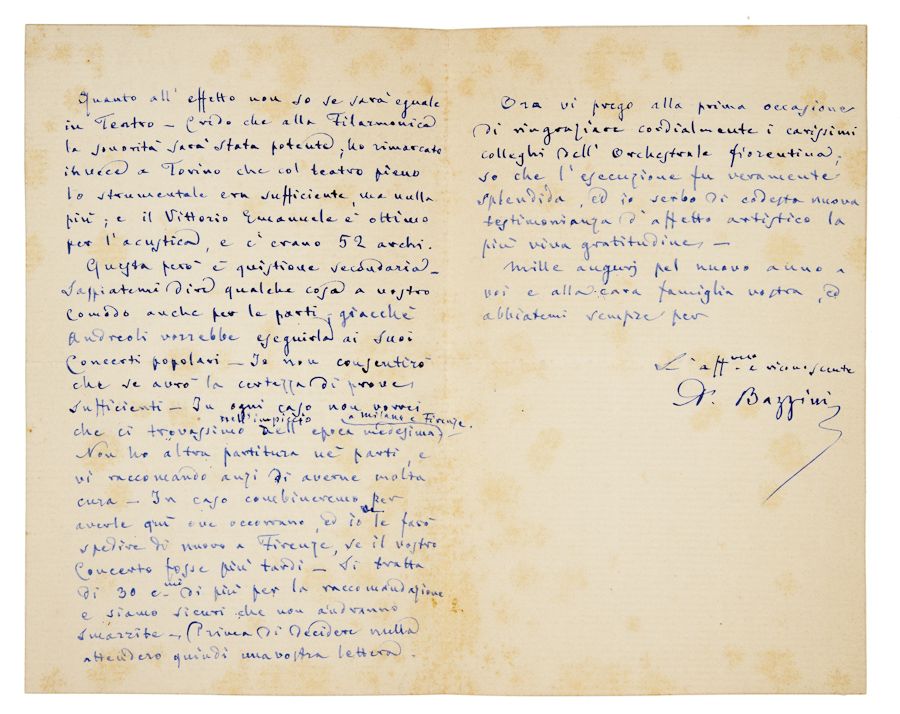 Quanto all' effetto non so se sarà eguale
in Teatro – Credo che alla Filarmonica
la sonorità sarà stata potente; ho rimarcato
invece a Torino che col teatro pieno
lo strumentale era sufficiente, ma nulla
più; e il Vittorio Emanuele è ottimo
per l'acustica, e c'erano 52 archi.
Questa però è quistione secondaria –
Sappiatemi dire qualche cosa a vostro
comodo anche per le parti; giacchè
Andreoli vorrebbe eseguirla ai suoi
Concerti popolari – Io non consentirò
che se avrò la certezza di prove
sufficienti – In ogni caso non vorrei
che ci trovassimo nell'impiccio dell'epoca medesima a Milano e Firenze.
Non ho altra partitura nè parti, e
vi raccomando anzi di averne molta
cura – In caso combineremo per
averle qui ove occorrano, ed io ve le farò
spedire di nuovo a Firenze, se il vostro
Concerto fosse più tardi – Si tratta
di 30 c.mi di più per la raccomandazione
e siamo sicuri che non andranno
smarrite – Prima di decidere nulla
attenderò quindi una vostra lettera.
Ora vi prego alla prima occasione
di ringraziare cordialmente i carissimi
colleghi dell' Orchestrale fiorentina;
so che l'esecuzione fu veramente
splendida, ed io serbo di codesta nuova
testimonianza d'affetto artistico la
più viva gratitudine –
Mille augurj pel nuovo anno a
voi e alla cara famiglia vostra, ed
abbiatemi sempre per
L' aff.mo e riconoscente
A. Bazzini